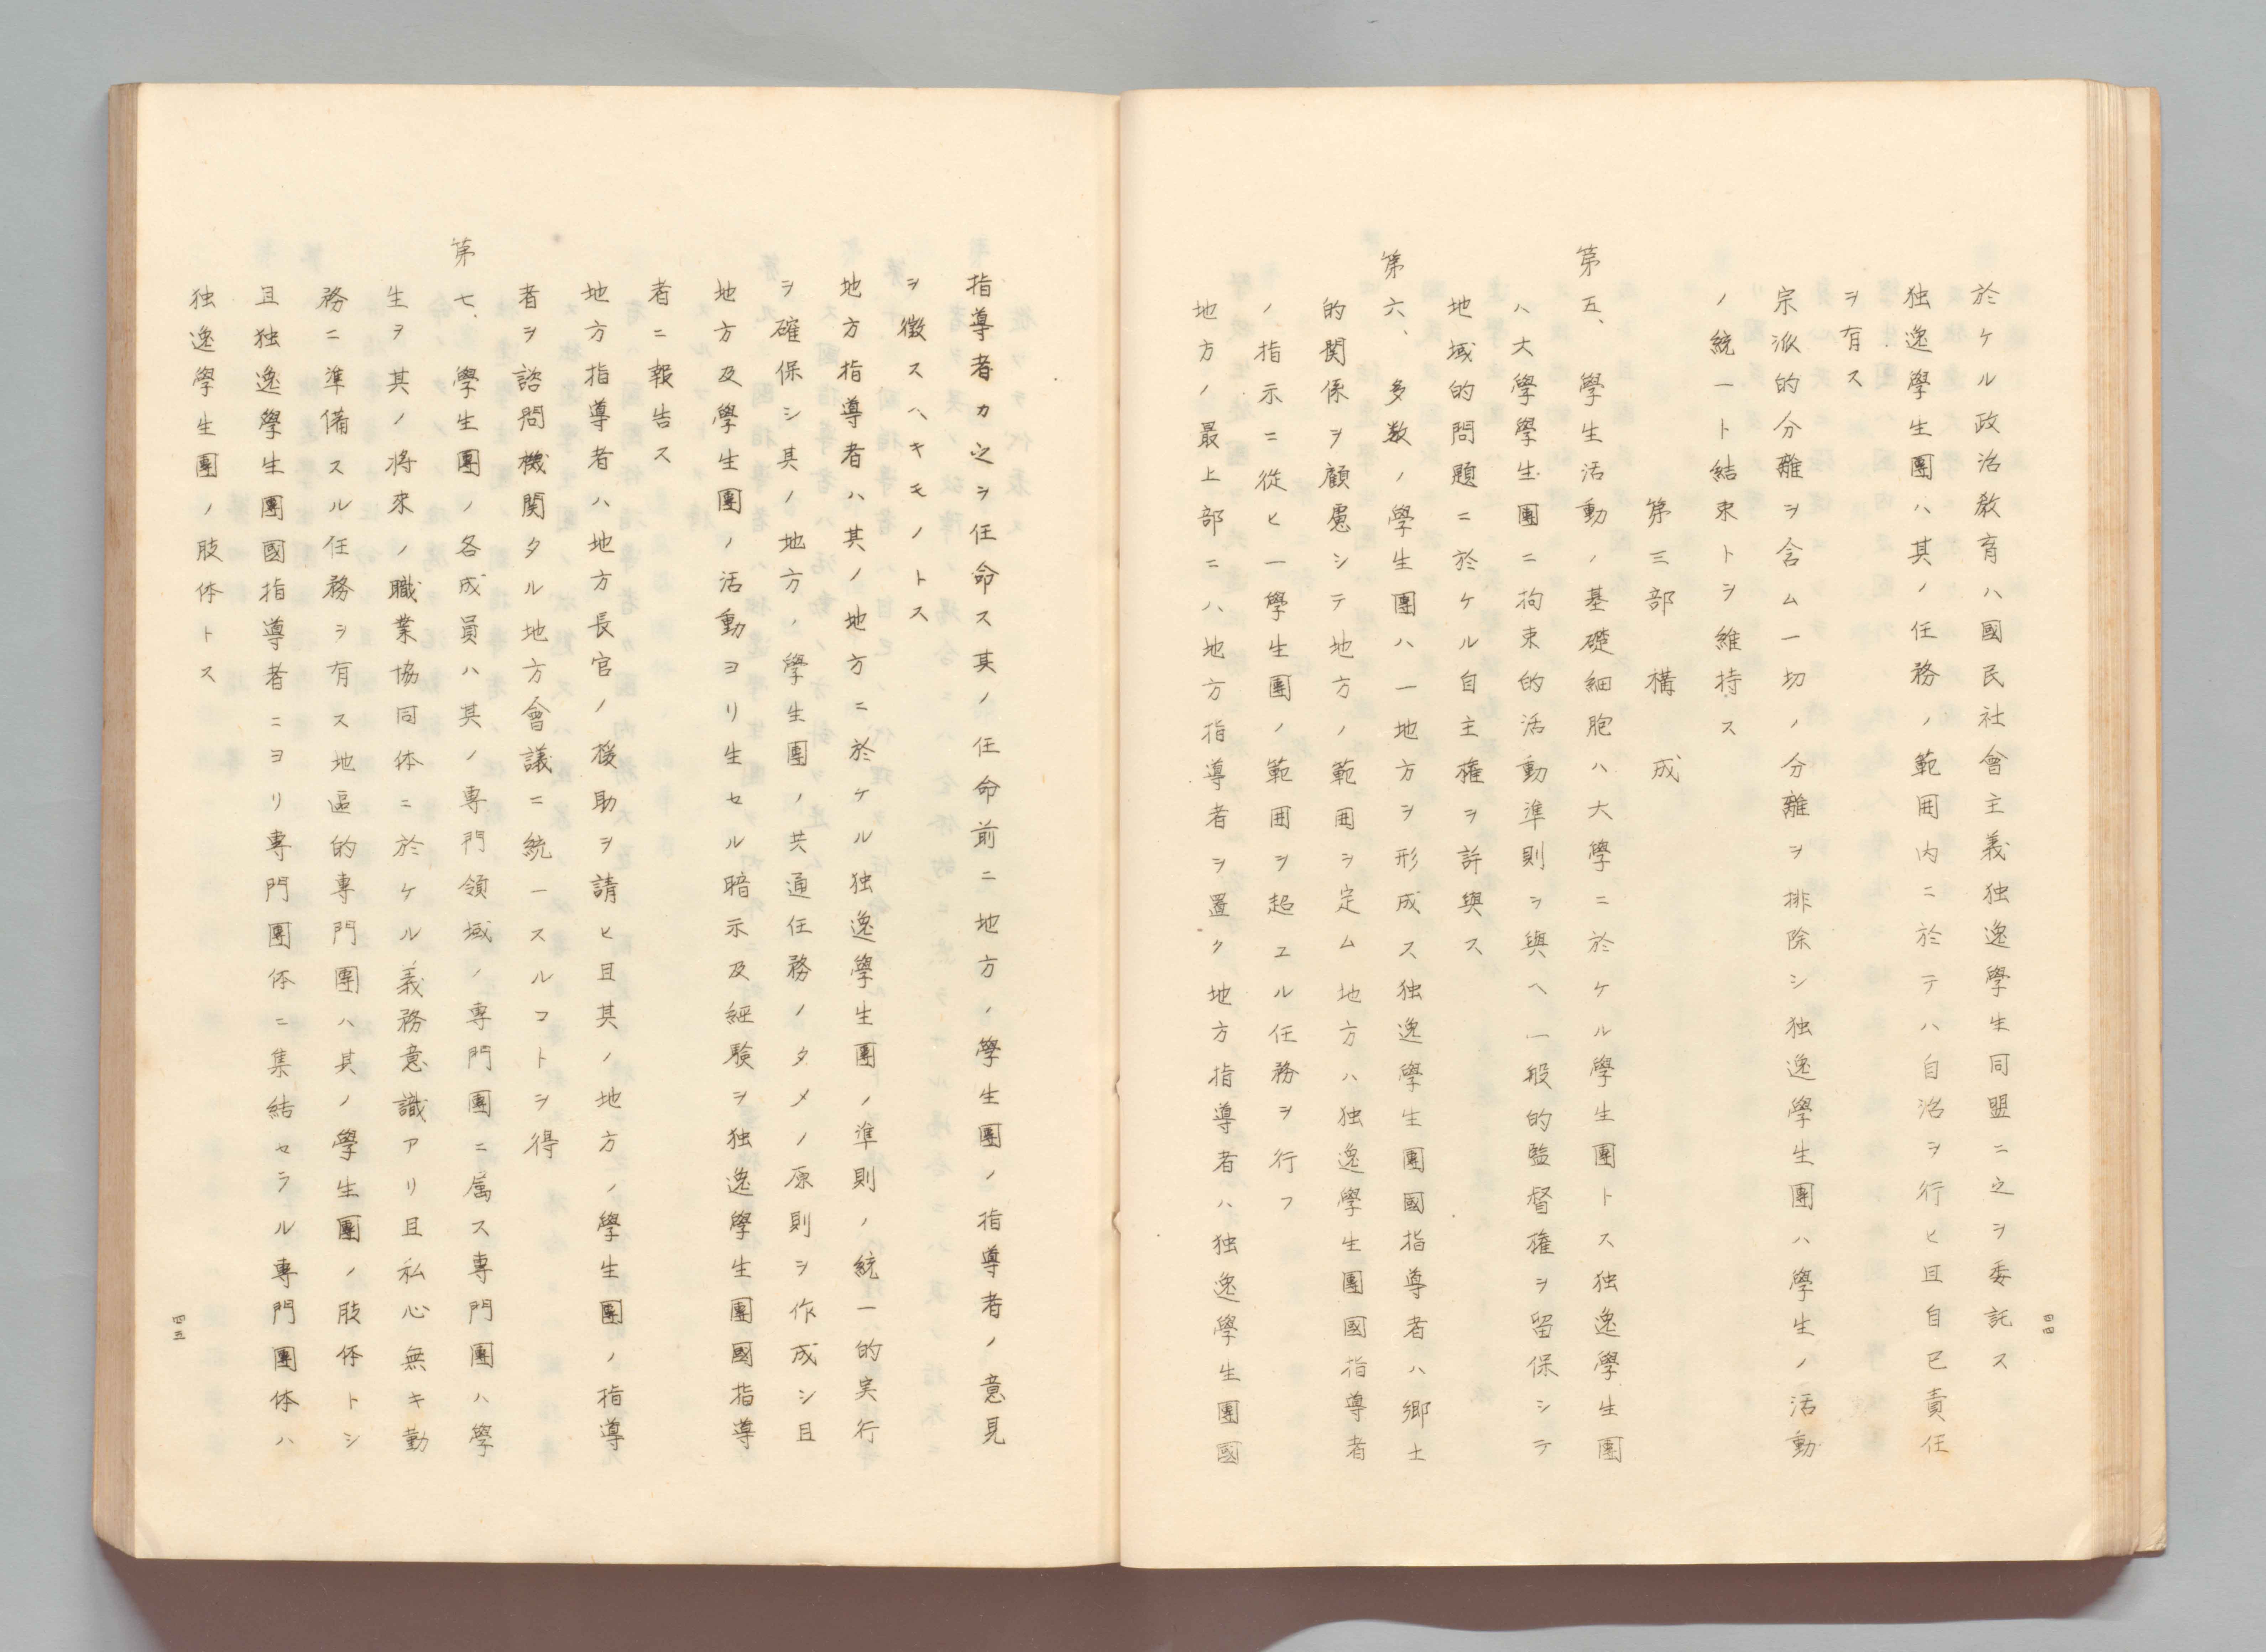 於ケル政治敎育ハ國民社會主義独逸學生同盟ニ之ヲ委託ス
独逸學生團ハ其ノ任務ノ範囲内ニ於テハ自治ヲ行ヒ且自已責任
ヲ有ス
宗派的分離ヲ含ム一切ノ分離ヲ排除シ独逸學生團ハ學生ノ活動
ノ統一ト結束トヲ維持ス
第三部 構成
第五、學生活動ノ基礎細胞ハ大學ニ於ケル學生團トス独逸學生團
ハ大學學生團ニ拘束的活動準則ヲ與ヘ一般的監督權ヲ留保シテ
地域的問題ニ於ケル自主權ヲ許與ス
第六、多数ノ學生團ハ一地方ヲ形成ス独逸學生團國指導者ハ郷土
的関係ヲ顧慮シテ地方ノ範囲ヲ定ム地方ハ独逸學生團國指導者
ノ指示ニ從ヒ一學生團ノ範囲ヲ超エル任務ヲ行フ
地方ノ最上部ニハ地方指導者ヲ置ク地方指導者ハ独逸學生團國
四四
指導者カ之ヲ任命ス其ノ任命前ニ地方ノ學生團ノ指導者ノ意見
ヲ徴スヘキモノトス
地方指導者ハ其ノ地方ニ於ケル独逸學生團ノ準則ノ統一的実行
ヲ確保シ其ノ地方ノ學生團ノ共通任務ノタメノ原則ヲ作成シ且
地方及學生團ノ活動ヨリ生セル暗示及経験ヲ独逸學生團國指導
者ニ報告ス
地方指導者ハ地方長官ノ援助ヲ請ヒ且其ノ地方ノ學生團ノ指導
者ヲ諮問機関タル地方會議ニ統一スルコトヲ得
第七、學生團ノ各成員ハ其ノ専門領域ノ専門團ニ属ス専門團ハ學
生ヲ其ノ将來ノ職業協同体ニ於ケル義務意識アリ且私心無キ勤
務ニ準備スル任務ヲ有ス地區的専門團ハ其ノ學生團ノ肢体トシ
且独逸學生團國指導者ニヨリ専門團体ニ集結セラル専門團体ハ
独逸學生團ノ肢体トス
四五